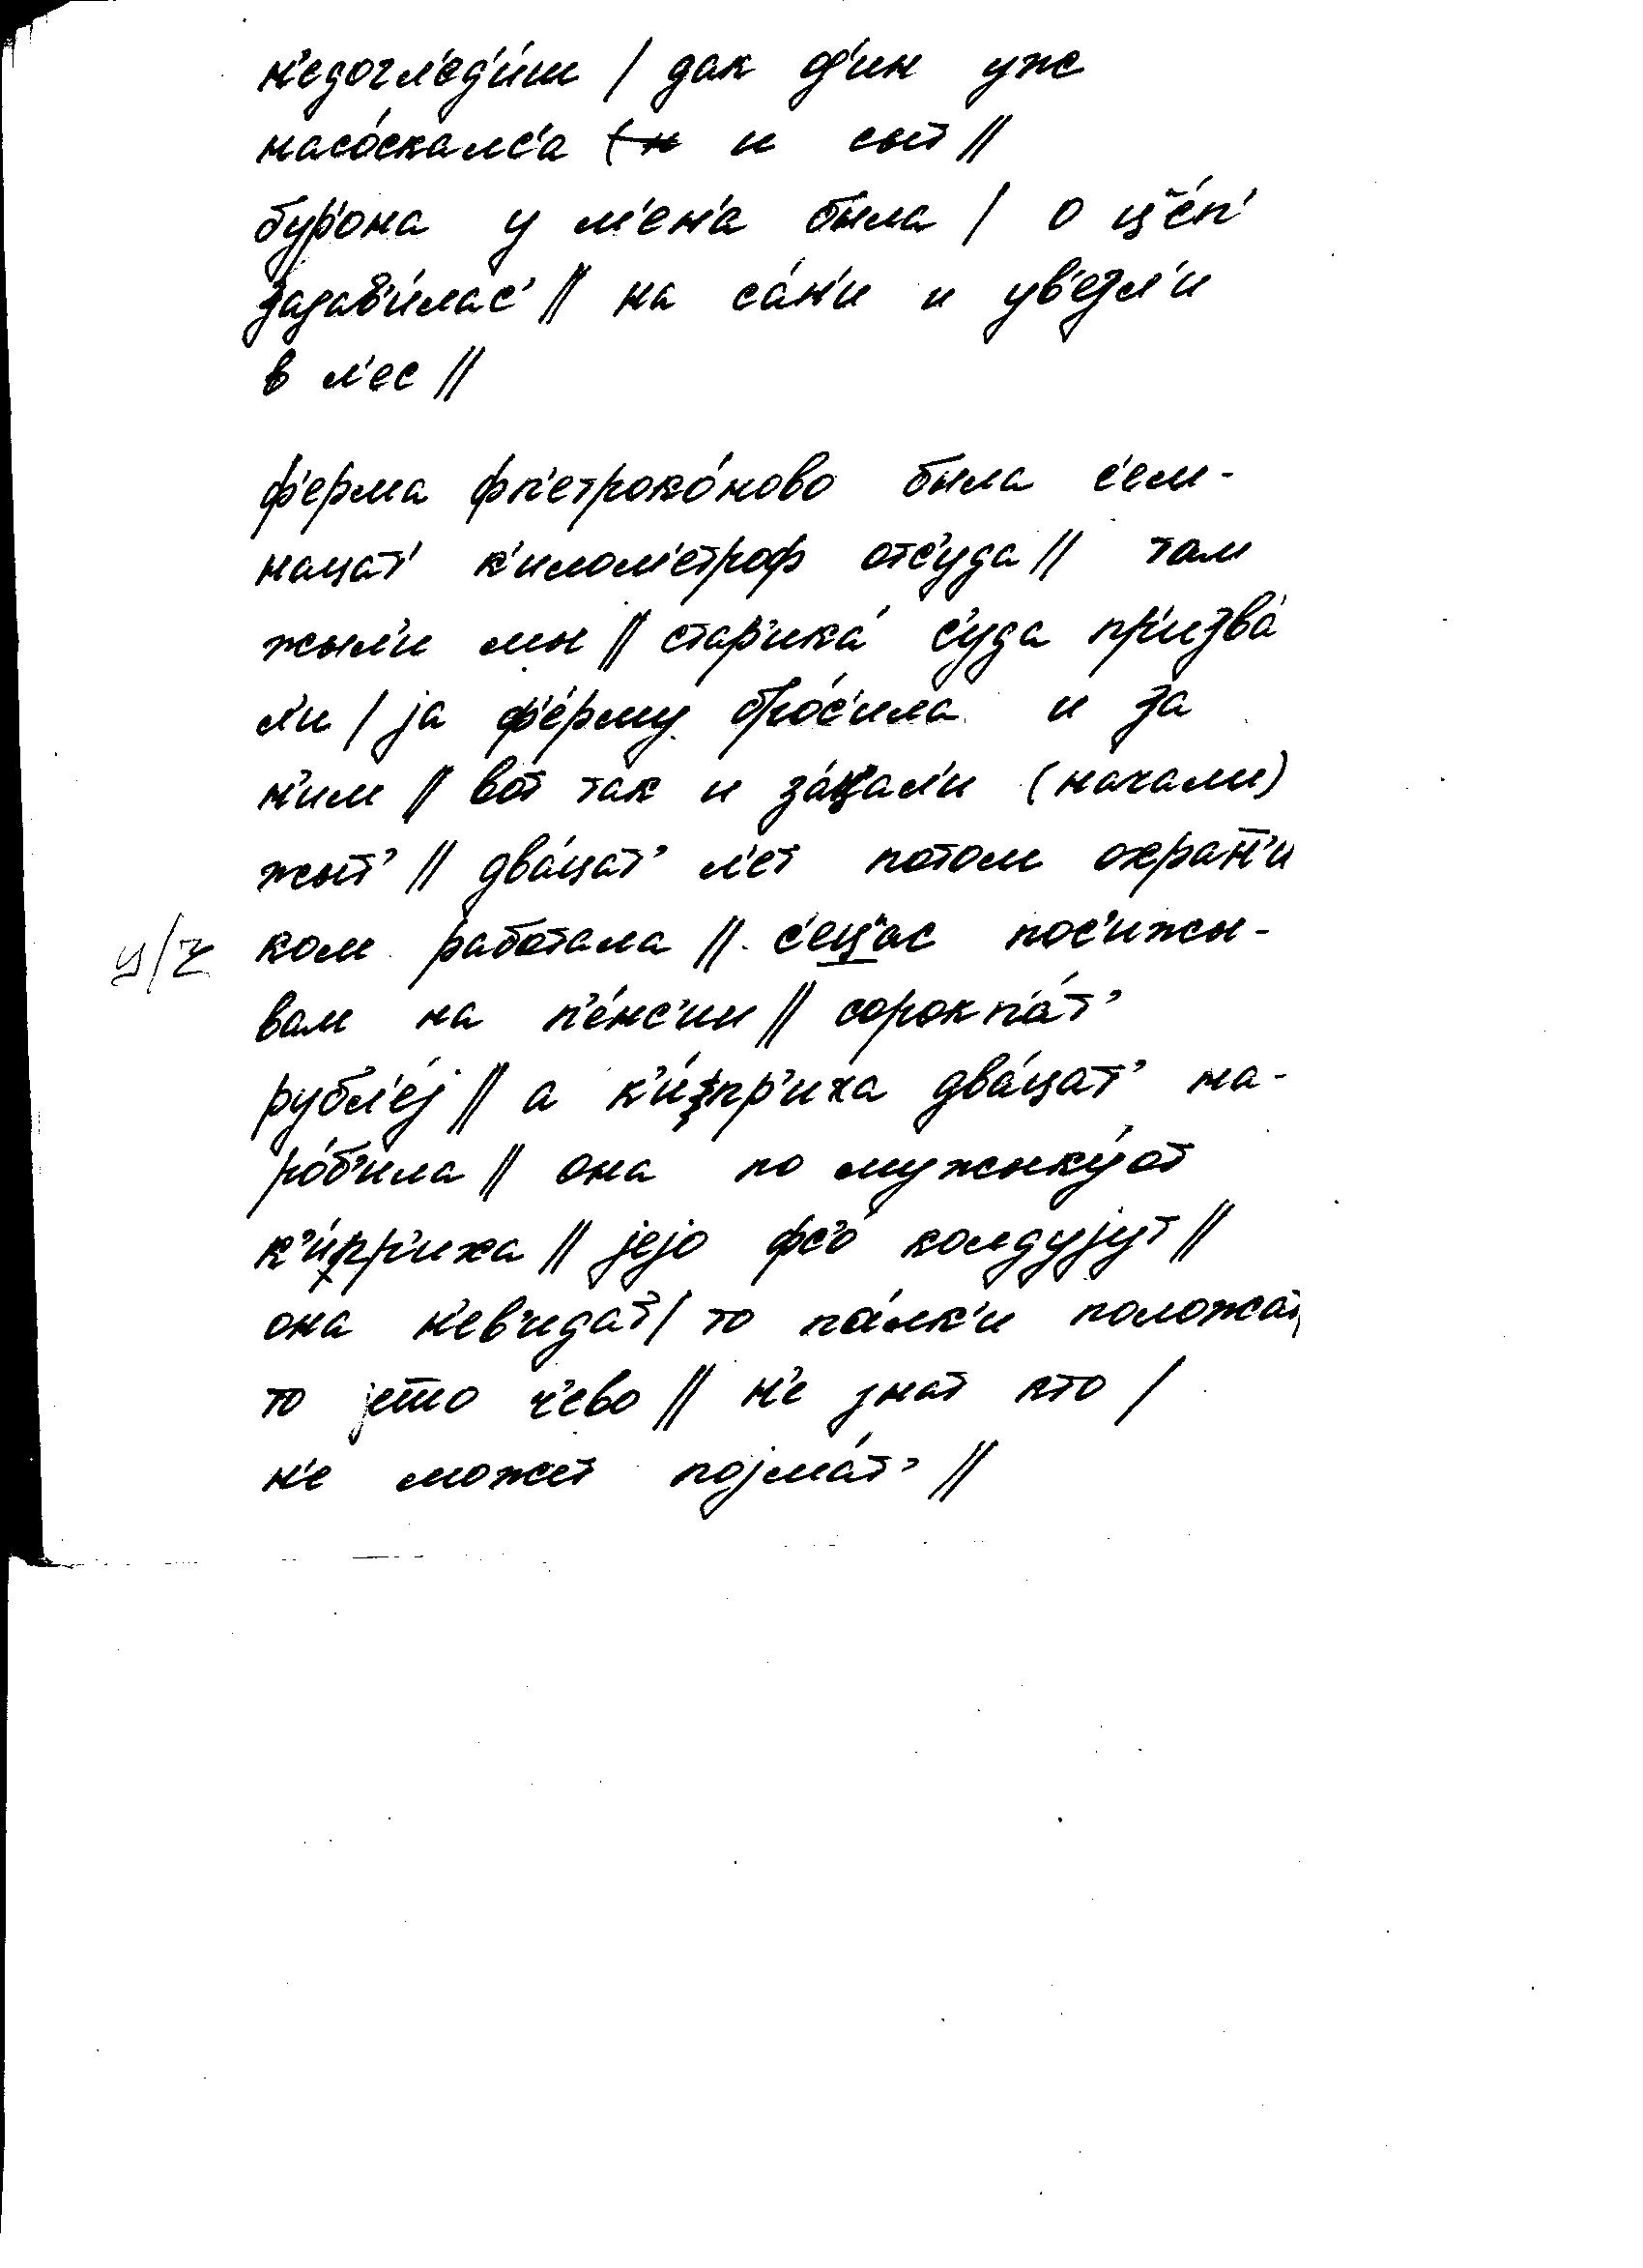 н'едогл'ед'и́ш / дак од'ин уж
насо́скалс'а и сыт //
бур'о́на у м'ен'а была / о цэ́п'
задав'и́лас' // на са́н'и и ув'езл'и
в л'ес //
ф'ерма фп'етроко́ново была с'ем-
нацат' к'илом'етроф отс'уда // там
жыл'и мы // стар'ика́ с'уда пр'изва́
л'и / jа ф'е́рму бро́с'ила и за
н'им // вот так и за́цал'и (начали)
жыт' // два́цат' л'ет потом охран'и
ком работала // с'ец'ас пос'ижы-
ц/ч
вам на п'е́нс'ии // сорокп'а́т'
рубл'е́j // а к'и́пр'иха два́цат' на-
ро́б'ила // она по мужыку́ от
к'и́пр'иха // jejо фс'о колдуjут //
она н'ев'идат / то па́лк'и положат,
то jешо ч'ево // н'е знат кто /
н'е может поjма́т' //